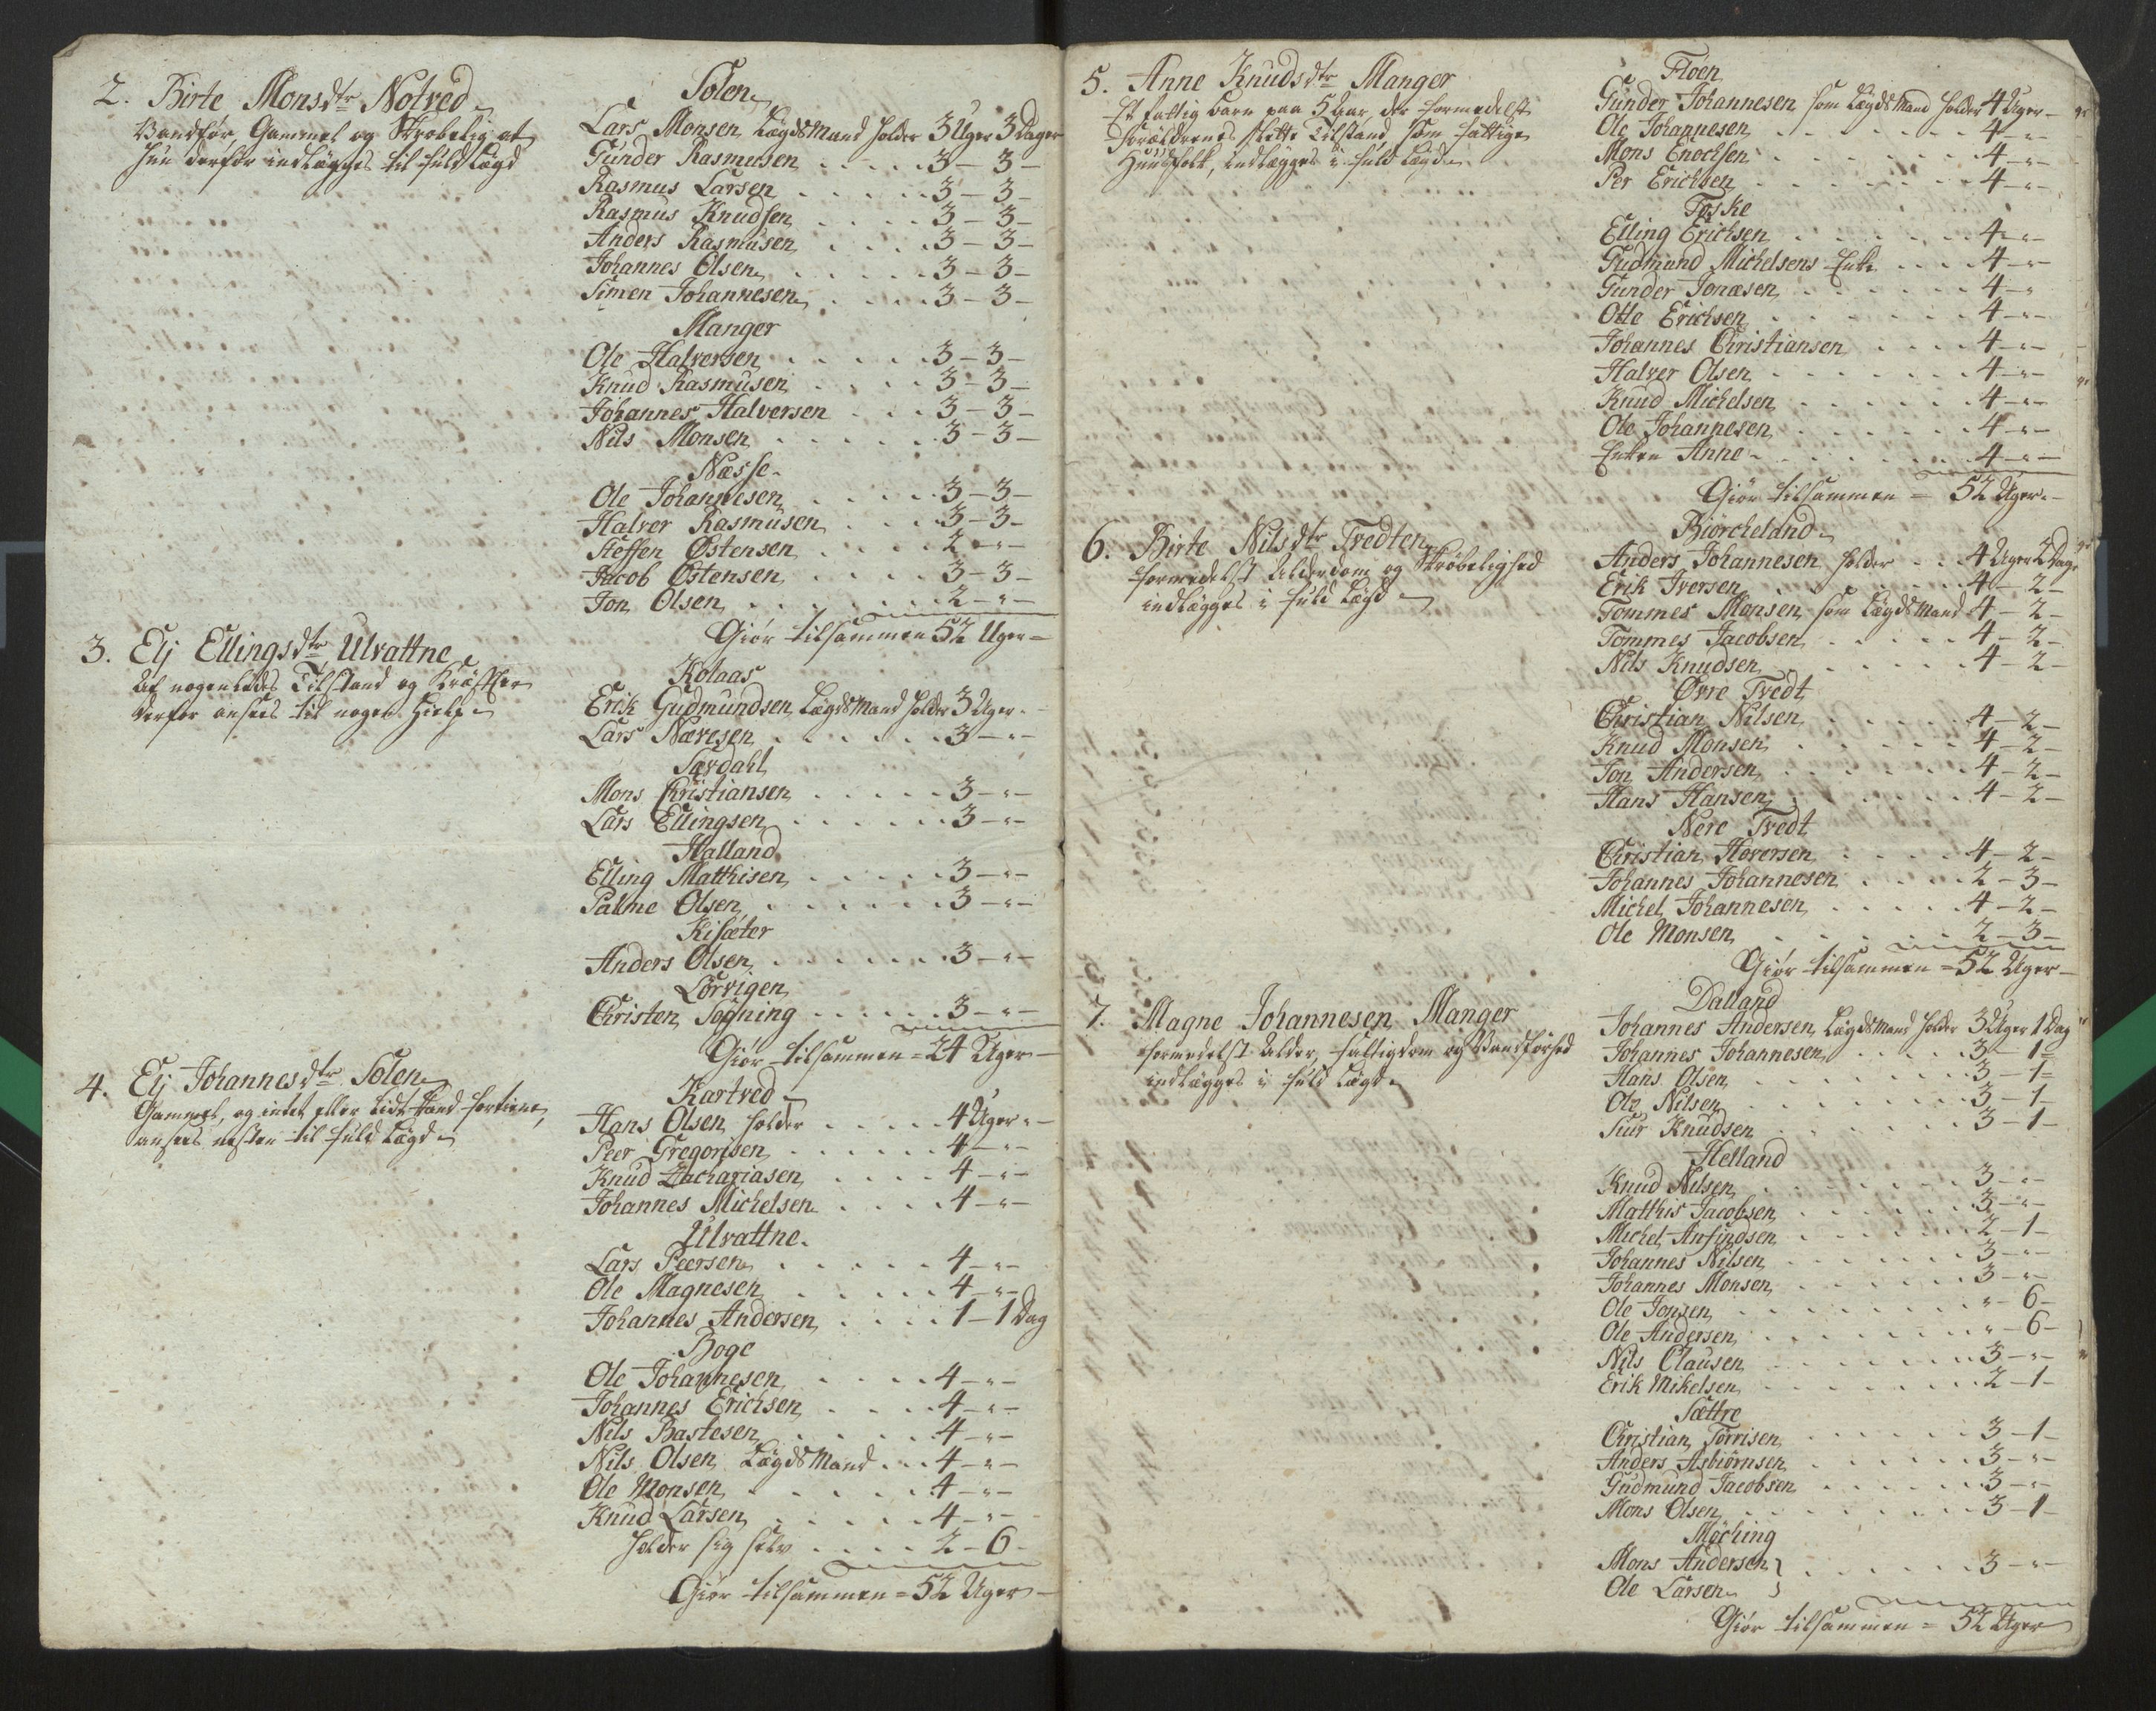 2. Birte Monsdtr Notved
Vandfør, Gammel og Skrøbelig at
hun derfor indlægges til fuld Lægd
Solen
Lars Monsen Lægds Mand holder 3 Uger 3 Dager
Gunder Rasmusen 3 - 3 -
Rasmus Larsen 3 - 3 -
Rasmus Knudsen 3 - 3 -
Anders Rasmusen 3 - 3 -
Johannes Olsen 3 - 3 -
Simen Johannesen 3 - 3 -
Manger
Ole Halversen 3 - 3 -
Knud Rasmusen 3 - 3 -
Johannes Halversen 3 - 3 -
Nils Monsen 3 - 3 -
Næsse
Ole Johannesen 3 - 3 -
Halver Rasmusen 3 - 3 -
Steffen Østensen 2 - " -
Jacob Østensen 3 - 3 -
Jon Olsen 2 - " -
Giør tilsammen 52 Uger -
3. Elj Ellingsdtr Ulvattne
Af nogenledes Tilstand og Kræfter
derfor ansees til nogen Hielp
Kolaas
Erik Gudmundsen Lægds Mand holder 3 Uger -
Lars Nævesen 3 - " -
Sævdahl
Mons Christiansen 3 - " -
Lars Ellingsen 3 - " -
Halland
Elling Matthisen 3 - " -
Palme Olsen 3 - " -
Kisæter
Anders Olsen 3 - " -
Lorvigen
Christen Sogning 3 - " -
Giør tilsammen = 24 Uger -
4. Elj Johannesdtr Solen
Gammel, og intet eller lidt kand fortiene,
ansees nesten til fuld Lægd
Kartved
Hans Olsen holder 4 Uger " -
Peer Gregorisen 4 - " -
Knud Zachariasen 4 - " -
Johannes Michelsen 4 - " -
Ulvattne
Lars Peersen 4 - " -
Ole Magnesen 4 - " -
Johannes Andersen 1 - 1 Dag
Boge
Ole Johannesen 4 - " -
Johannes Erichsen 4 - " -
Nils Bastesen 4 - " -
Nils Olsen Lægds Mand 4 - " -
Ole Monsen 4 - " -
Knud Larsen 4 - " -
holder sig selv 2 - 6 -
Giør tilsammen = 52 Uger -
5. Anne Knudsdtr Manger
Et fattig Barn paa 5 Aar, der formedelst
Forældrenes slette Tilstand som fattige
Huusfolk, indlægges i fuld Lægd
Floen
Gunder Johannesen som Lægds Mand holder 4 Uger -
Ole Johannesen 4 - " -
Mons Enochsen 4 - " -
Per Erichsen 4 - " -
Toske
Elling Erichsen 4 - " -
Gudmund Michelsens Enke 4 - " -
Gunder Jonæsen 4 - "
Otte Erichsen 4 - " -
Johannes Christiansen 4 - " -
Halver Olsen 4 - " -
Knud Michelsen 4 - " -
Ole Johannesen 4 - " -
Enken Anne 4 - " -
Giør tilsammen = 52 Uger -
6. Birte Nilsdtr Tredten
formedelst Alderdom og Skrøbelighed
indlægges i fuld Lægd
Biørckeland
Anders Johannesen holder 4 Uger 2 Dage
Erik Iversen 4 - 2 -
Tommes Monsen som Lægds Mand 4 - 2 -
Tommes Jacobsen 4 - 2 -
Nils Knudsen 4 - 2 -
Øvre Tvedt
Christian Nilsen 4 - 2 -
Knud Monsen 4 - 2 -
Jon Andersen 4 - 2 -
Hans Hansen 4 - 2 -
Nere Tvedt
Christian Haversen 4 - 2 -
Johannes Johannesen 2 - 3 -
Michel Johannesen 4 - 2 -
Ole Monsen 2 - 3 -
Giør tilsammen = 52 Uger -
7. Magne Johannesen Manger
formedelst Alder, fattigdom og Vandførhed
indlægges i fuld Lægd
Dalland
Johannes Andersen Lægds Mand holder 3 Uger 1 Dag
Johannes Johannesen 3 - 1 -
Hans Olsen 3 - 1 -
Ole Nilsen 3 - 1 -
Siur Knudsen 3 - 1 -
Helland
Knud Nilsen 3 - " -
Matthis Jacobsen 3 - " -
Michel Ansindsen 2 - 1 -
Johannes Nilsen 3 - " -
Johannes Monsen 3 - " -
Ole Jonsen " - 6 -
Ole Andersen " - 6 -
Nils Clausen 3 - " -
Erik Mikelsen 2 - 1 -
Sættre
Christian Torrisen 3 - 1 -
Anders Asbiørnsen 3 - " -
Gudmund Jacobsen 3 - " -
Mons Olsen 3 - 1 -
Møching
Mons Andersen } 3 - " -
Ole Larsen
Giør tilsammen = 52 Uger